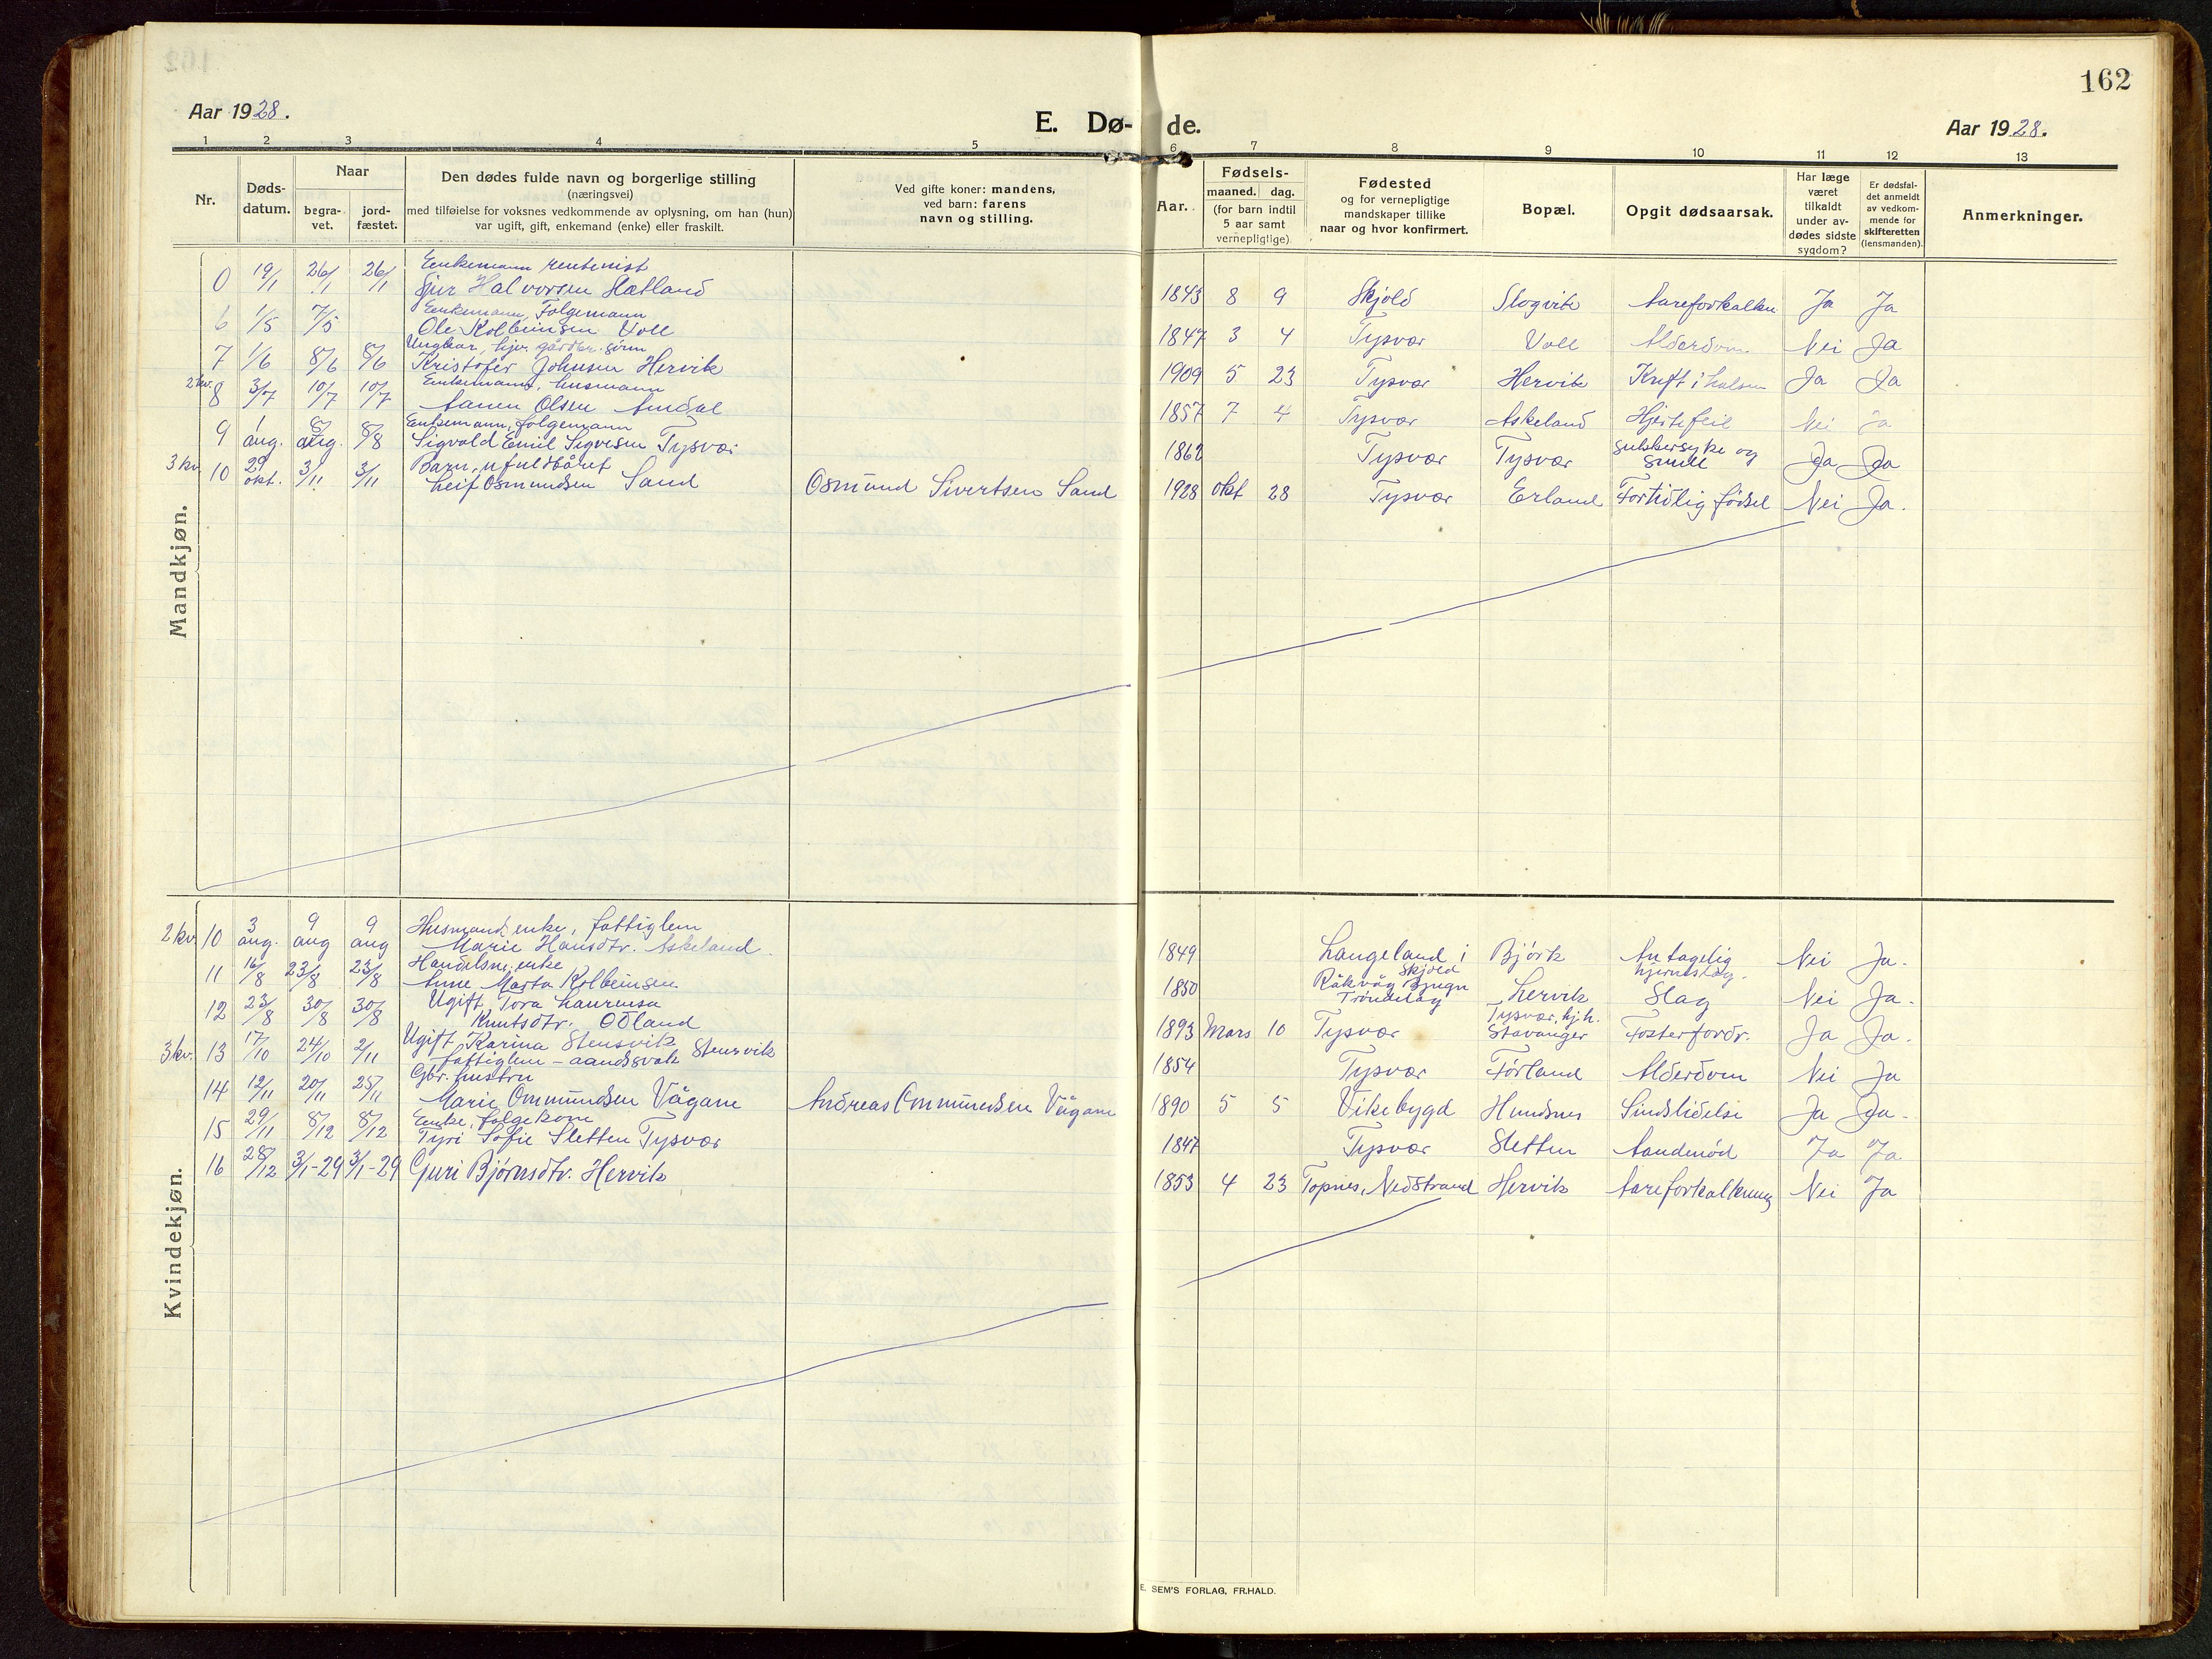 162
Aar 1928.
E. Dø- de.
Aar 1928.
1 2 3 4 5 6 7 8 9 10 11 12 13
Nr.
Døds-
datum.
Naar
begra-
vet.
jord-
fæstet.
Den dødes fulde navn og borgerlige stilling
(næringsvei)
med tilføielse for voksnes vedkommende av oplysning, om han (hun)
var ugift, gift, enkemand (enke) eller fraskilt.
Ved gifte koner: mandens,
ved barn: farens
navn og stilling.
Aar.
Fødsels-
maaned. dag.
(for barn indtil
5 aar samt
vernepligtige)
Fødested
og for vernepligtige
mandskaper tillike
naar og hvor konfirmert.
Bopæl.
Opgit dødsaarsak.
Har læge
været
tilkaldt
under av-
dødes sidste
sygdom?
Er dødsfal-
det anmeldt
av vedkom-
mende for
skifteretten
(lensmanden).
Anmerkninger.
Mandkjøn.
Enkemann rentenist
0 19/1 26/1 26/1 Sjur Halvorsen Slætland 1843 8 9 Skjold Slogvik Aareforkalkn Ja Ja
Enkemann, Folgemann
6 1/5 7/5 Ole Kolbeinsen Voll 1847 3 4 Tysvær Voll Alderdom Nei Ja
Ungkar, hjv. gårdbr. sønn
7 1/6 8/6 8/6 Kristofer Johnsen Hervik 1909 5 23 Tysvær Hervik Kreft i halsen Ja Ja
Enkemann, husmann
2 kv. 8 3/7 10/7 10/7 Aanen Olsen Amdal 1857 7 4 Tysvær Askeland Hjertefeil Nei Ja
Enkemann, følgemann
9 1 aug. 8 aug. 8/8 Sigvald Emil Sigvesen Tysvær 1862 Tysvær Tysvær Sukkersyke og Ja Ja
Barn, ufuldbåret
3 kv. 10 29 okt. 3/11 3/11 Leif Osmundsen Sand Osmund Sivertsen Sand 1928 okt 28 Tysvær Erland Fortidlig fødsel Nei Ja.
Kvindekjøn.
Husmands enke, fattiglem
2 kv. 10 3 aug. 9 aug 9 aug Marie Hansdtr. Askeland. 1849 Langeland i Skjold Bjørk Antagelig hjerneslag. Nei Ja.
Handelsm. enke
11 16/8 23/8 23/8 Anne Marta Kolbeinsen 1850 Råkvåg Bjugn Trøndelag Hervik Slag Nei Ja.
Ugift Tora Laurensa
12 23/8 30/8 30/8 Knutsdtr. Odland 1893 Mars 10 Tysvær Tysvær, hj.h. Stavanger Fosterfordr. Ja Ja.
Ugift Karina Stensvik
3 kv. 13 17/10 24/10 2/11 fattiglem - aandssvak Stensvik 1854 Tysvær Førland Alderdom Nei Ja
Gbr. hustru
14 12/11 20/11 25/11 Marie Ommundsen Vågane Andreas Ommundsen Vågane 1890 5 5 Vikebygd Hundsnes Sindslidelse Ja Ja.
Enke, følgekone
15 29/11 8/12 8/12 Tyri Sofie Sletten Tysvær 1847 Tysvær Sletten Aandenød Ja Ja
16 28/12 3/1-29 3/1-29 Guri Bjørnsdtr. Hervik 1853 4 23 Topnes, Nedstrand Hervik Aareforkalkning Nei Ja
E. SEM'S FORLAG, FR.HALD.